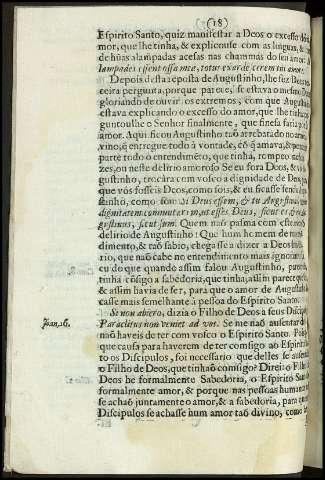 (18)
Espirito Santo, quiz manifestar a Deos o excesso do a-
mor, que lhe tinha, & explicouse com as linguas, &
de hũas alampadas acesas nas chammas do seu amor:
lampades essent ossa mea, totus exardescerem tui amore.
Depois desta reposta de Augustinho, lhe fez Deos
ceira pergunta, porque parece, se estava o mesmo Deos
gloriando de ouvir os extremos, com que Augustinho
estava explicando o excesso do amor, que lhe tinha
guntoulhe o Senhor finalmente, que finesa faria por
amor. Aqui ficou Augustinho taõ arrebatado no amor
vino, & entregue todo à vontade, cõ q̃ amava, & per
parte todo o entendimẽto, que tinha, rompeo
zes, ou neste delirio amoroso Se eu fora Deos, & vós
gustinho, trocára com vosco a dignidade de Deos,
que vós fosseis Deos, como sois, & eu ficasse sendo
tinho, como sou
dignitatem commutarem, ut esses Deus, sicut es, &
gustinus, sicut sum. Quem naõ pasma com este
delirio de Augustinho? Que hum homem de
dimento, & taõ sabio, chegasse a dizer a Deos
rio, que naõ cabe no entendimento mais ignorante
eu do que quando assim falou Augustinho, parece
tinha cõsigo a sabedoria, que tinha, assim parece
& assim havia de ser, para que o amor de Augustinho
casse mais semelhante à pessoa do Espirito Santo.
Si non abiero, dizia o Filho de Deos a seus Discip.
Paraclitus non veniet ad vos. Se me naõ ausentar
naõ haveis de ter com vosco o Espirito Santo. Pois
que causa para haverem de ter comsigo ao Espirito
to os Discipulos, foi necessario que delles se ausente
o Filho de Deos, que tinhaõ comsigo? Direi: o Filho
Deos he formalmente Sabedoria, o Espirito Santo
formalmente amor, & porque nas pessoas humanas
se achaõ juntamente o amor, & a sabedoria, para que
Discipulos se achasse hum amor taõ divino, como
Joan. 16.